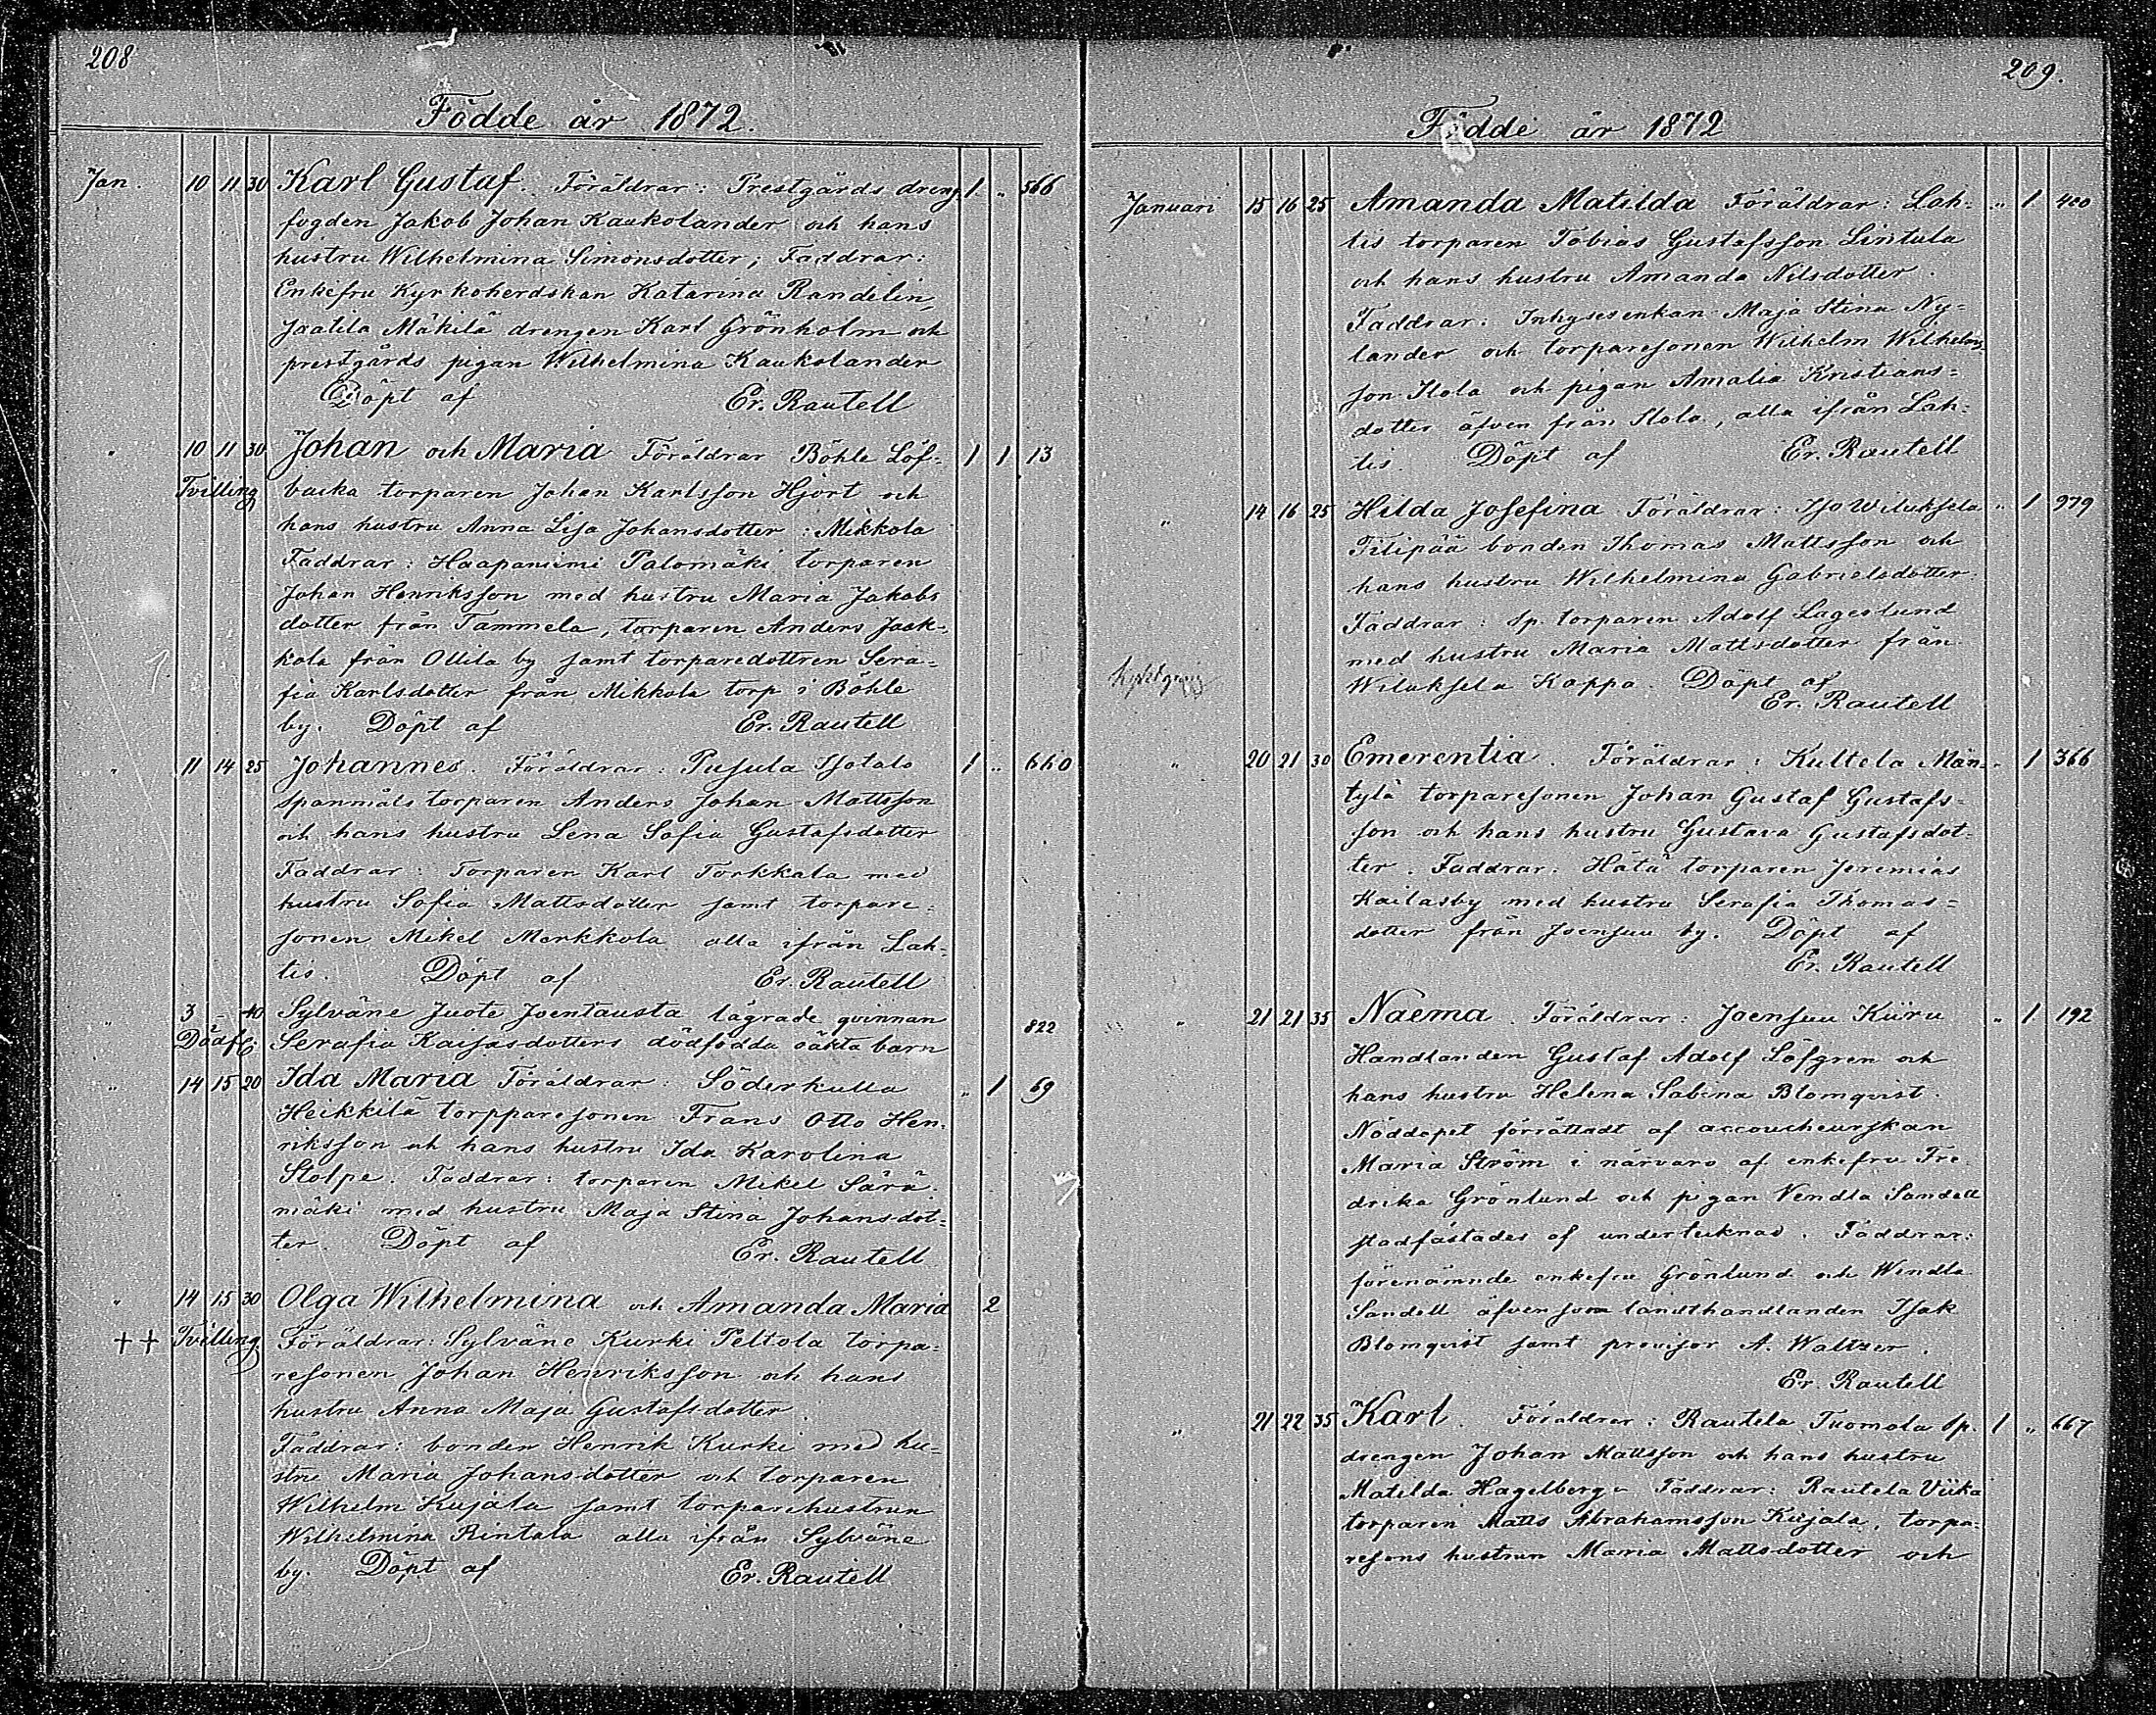 208
Födde år 1872.
Jan. 10 11 30 Karl Gustaf. Föräldrar: Prestgårds dreng- 1 " 566
fogden Jakob Johan Kaukolander och hans
hustru Wilhelmina Simonsdotter; Faddrar:
Enkefru Kyrkoherdskan Katarina Randelin,
Jaatila Mäkilä drengen Karl Grönholm och
prestgårds pigan Wilhelmina Kaukolander
Döpt af Er. Rautell
" 10 11 30 Johan och Maria Föräldrar Böhle Löf- 1 1 13
Tvilling backa torparen Johan Karlsson Hjort och
hans hustru Anna Lisa Johansdotter: Mikkola
Faddrar: Haapaniemi Palomäki torparen
Johan Henriksson med hustru Maria Jakobs
dotter från Tammela, torparen Anders Jaak-
kola från Ollila by samt torparedottren Sera-
fia Karlsdotter från Mikkola torp i Böhle
by. Döpt af Er. Rautell
" 11 14 25 Johannes. Föräldrar: Pusula Isotalo 1 " 660
spanmåls torparen Anders Johan Mattsson
och hans hustru Lena Sofia Gustafsdotter
Faddrar: Torparen Karl Torkkala med
hustru Sofia Mattsdotter samt torpare-
sonen Mikel Markkola alla ifrån Lah-
tis. Döpt af Er. Rautell
" 3 - 40 Sylväne Juote Joentausta lägrade qvinnan 822
Dödf. Serafia Kaisasdotters dödfödda oäkta barn
" 14 15 20 Ida Maria Föräldrar: Söderkulla " 1 69
Heikkilä torpparesonen Frans Otto Hen-
riksson och hans hustru Ida Karolina
Stolpe. Faddrar: torparen Mikel Särä-
mäki med hustru Maja Stina Johansdot-
ter. Döpt af Er. Rautell
" 14 15 30 Olga Wilhelmina och Amanda Maria 2
++ Tvilling. Föräldrar: Sylväne Kurki Peltola torpa-
resonen Johan Henriksson och hans
hustru Anna Maja Gustafsdotter.
Faddrar: bonden Henrik Kurki med hu-
stru Maria Johansdotter och torparen
Wilhelm Kujala samt torparehustrun
Wilhelmina Rintala alla ifrån Sylväne
by. Döpt af Er. Rautell
209.
Födde år 1872
Januari 15 16 25 Amanda Matilda Föräldrar: Lah- " 1 420
tis torparen Tobias Gustafsson Lintula
och hans hustru Amanda Nilsdotter.
Faddrar: Inhysesenkan Maja Stina Ny-
lander och torparesonen Wilhelm Wilhelms-
son Kola och pigan Amalia Kristians-
dotter äfven från Kola, alla ifrån Lah-
tis. Döpt af Er. Rautell
" 14 16 25 Hilda Josefina Föräldrar: Iso Wiluksela " 1 979
Filipää bonden Thomas Mattsson och
hans hustru Wilhelmina Gabrielsdotter.
Faddrar: sp. torparen Adolf Lagerlund
med hustru Maria Mattsdotter från
Wiluksela Kappa. Döpt af
Er. Rautell
" 20 21 30 Emerentia. Föräldrar: Kultela Män- " 1 366
tylä torparesonen Johan Gustaf Gustafs-
son och hans hustru Gustava Gustafsdot-
ter. Faddrar: Hätä torparen Jeremias
Kailasby med hustru Serafia Thomas-
dotter från Joensuu by. Döpt af
Er. Rautell
" 21 21 35 Naema. Föräldrar: Joensuu Kiiru " 1 192
Handlanden Gustaf Adolf Löfgren och
hans hustru Helena Sabina Blomqvist.
Nöddopet förrättadt af accoucheurskan
Maria Ström i närvaro af enkefru Fre-
drika Grönlund och pigan Vendla Sandell
stadfästades af undertecknad. Faddrar:
förenämnde enkefru Grönlund och Wendla
Sandell äfvensom landthandlanden Isak
Blomqvist samt provisor A. Waltzer.
Er. Rautell
" 21 22 35 Karl. Föräldrar: Rautela Tuomola sp. 1 " 667
drengen Johan Mattsson och hans hustru
Matilda Hagelberg. Faddrar: Rautela Viika
torparen Matts Abrahamsson Kujala, torpa-
resons hustrun Maria Mattsdotter och